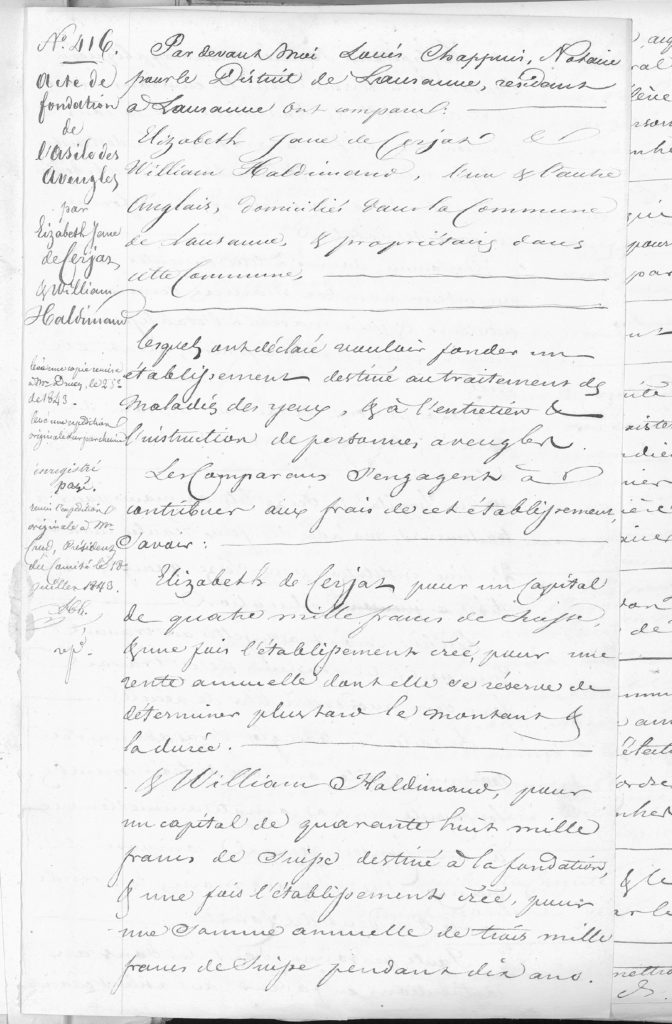 No. 416.
Acte de
fondation
de
l'Asile des
Aveugles
par
Elizabeth Jane
de Cerjat,
& William
Haldimand
levé une copie remise
à Mr. Druey, le 25
de 1843.
levé une expédition
originale sur parchemin
enregistré
payé.
remis l'expédition
originale à Mr.
Président
du Comité le 18
Juillet 1843.
Par devant moi Louis Chappuis, Notaire
pour le District de Lausanne, résidant
à Lausanne ont comparu:
Elizabeth Jane de Cerjat &
William Haldimand, l'un & l'autre
Anglais, domiciliés dans la Commune
de Lausanne, & propriétaires dans
cette Commune,
lesquels ont déclaré vouloir fonder un
établissement destiné au traitement des
maladies des yeux, & à l'entretien &
l'instruction de personnes aveugles.
Les Comparans s'engagent à
contribuer aux frais de cet établissement,
Savoir:
Elizabeth de Cerjat pour un Capital
de quatre mille francs de Suisse,
& une fois l'établissement créé, pour une
rente annuelle dont elle se réserve de
déterminer plus tard le montant &
la durée.
& William Haldimand, pour
un capital de quarante huit mille
francs de Suisse destiné à la fondation,
& une fois l'établissement créé, pour
une somme annuelle de trois mille
francs de Suisse pendant dix ans.